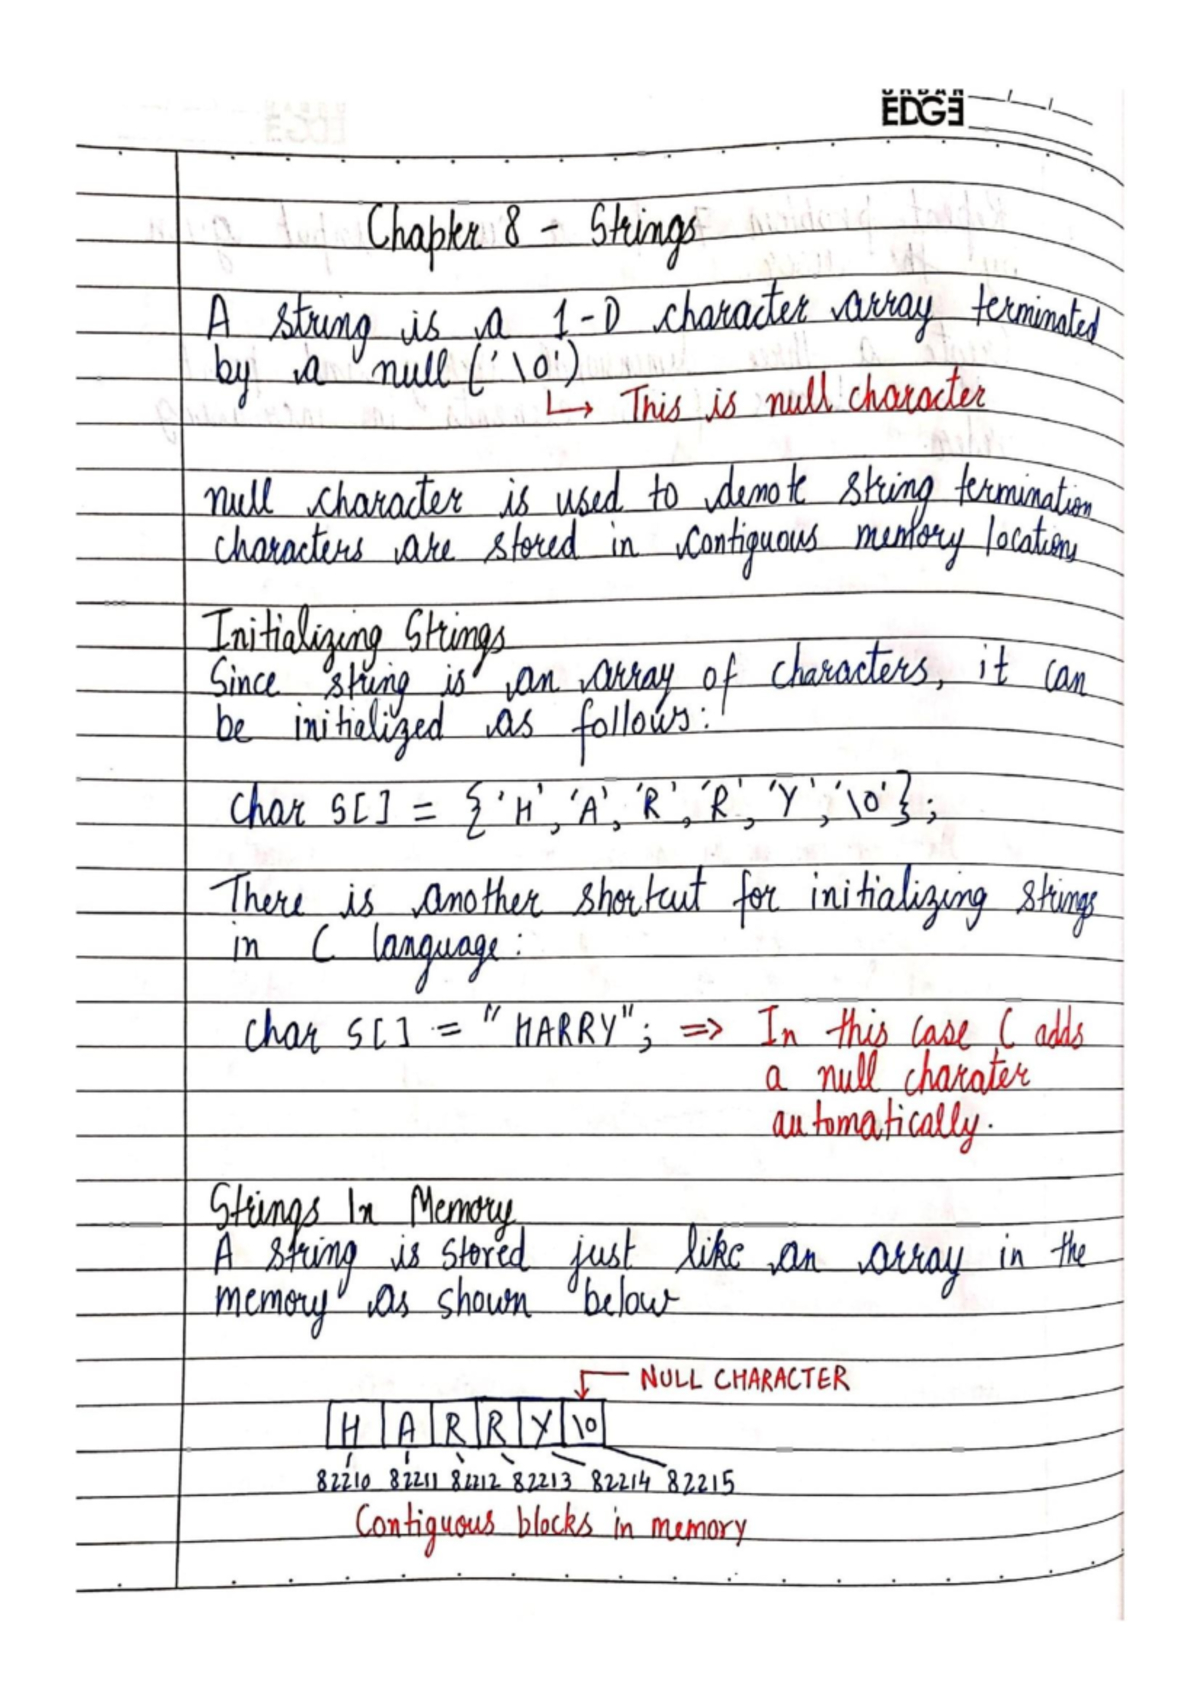 URBAN
EDGE
Chapter 8 - Strings
A string is a 1-D character array terminated
by a null ('\0')
↳ This is null character
null character is used to denote string termination
characters are stored in contiguous memory locations
Initializing Strings
Since string is an array of characters, it can
be initialized as follows:
char S[] = {'H', 'A', 'R', 'R', 'Y', '\0'};
There is another shortcut for initializing strings
in C language:
char S[] = "HARRY"; => In this case C adds
a null charater
automatically.
Strings In Memory
A string is stored just like an array in the
memory as shown below
NULL CHARACTER
H A R R Y \0
82210 82211 82212 82213 82214 82215
Contiguous blocks in memory